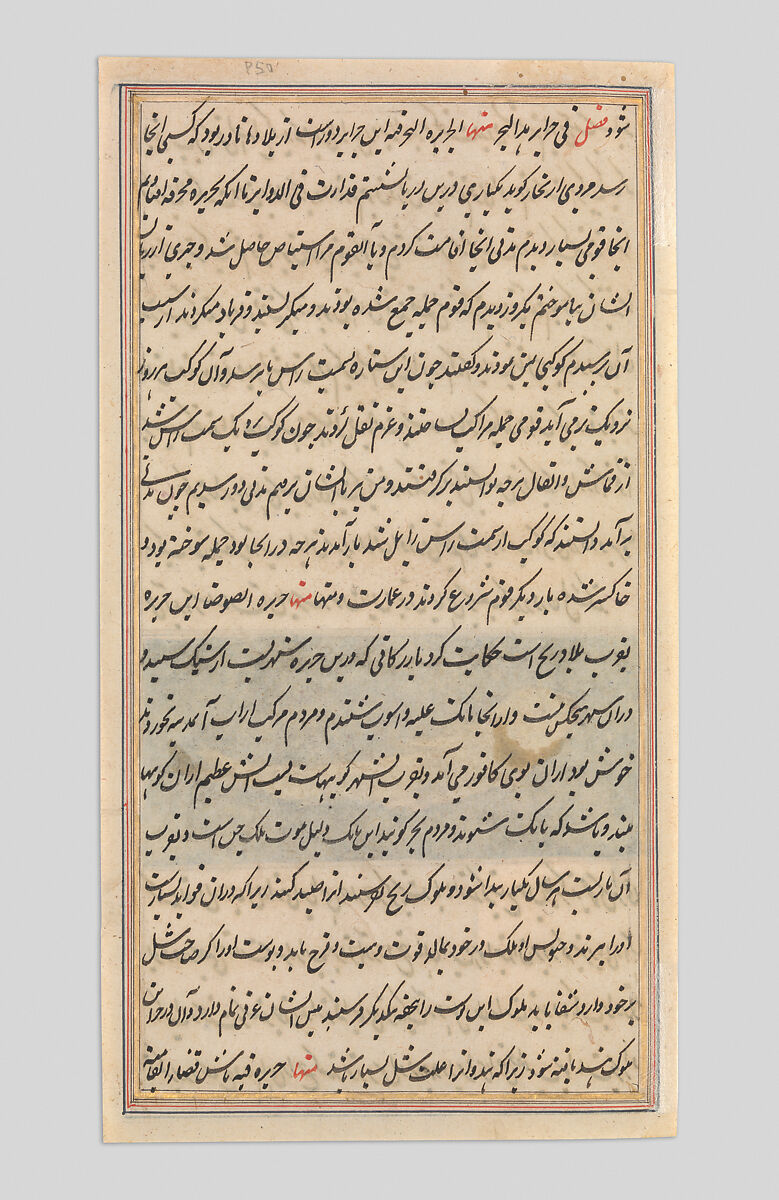 P50
شود فصل فی جزایر هذا البحر منها الجزیره المحرقه این جزایر دور است از بلادها نادر بود که کسی انجا
رسد مردی از تجار کوید یکباری درین دریا نشستم فدارت فی الدوایر تا انکه بجزیره محرقه افتادم
انجا قومی بسیار دیدم مدتی انجا اقامت کردم و با آن قوم مرا استیناس حاصل شد و چیزی از زبان
ایشان بیاموختم یکروز دیدم که قوم جمله جمع شده بودند و میگریستند و فریاد میکردند از سبب
آن پرسیدم کوکبی بمن نمودند و گفتند چون این ستاره بسمت راس ما برسد وآن کوکب هر روز
نزدیکتر می آید قومی جمله مراکب ساختند و عزم نقل کردند چون کوکب نزدیک سمت راس شد
از قماش و اثقال هرچه توانستند برگرفتند و من نیز با ایشان برفتم مدتی دور شدیم چون مدتی
برآمد دانستند که کوکب از سمت راس زایل شد باز آمدند هرچه در انجا بود جمله سوخته بود و
خاکستر شده بار دیگر قوم شروع کردند در عمارت ومنها منها جزیره الضوضا این جزیره
بقرب بلاد زنج است حکایت کرد بازرگانی که درین جزیره شهریست از سنگ سپید و
دران شهر هیچکس نیست و از انجا بانک غلبه و آشوب شنیدم و مردم مرکب ازاب آ نمد میخوردند
خوش بود ازان بوی کافور می آمد و بقرب آن شهر کوههاست بشب آتش عظیم ازان کوهها
بلند و باشد که بانک شنوند و مردم بحر گویند این بانک دلیل موت ملک جن است و بقرب
آن ماریست هر سال یکبار پیدا شود و ملوک زنج کس فرستند انرا صید کنند زیرا که دران فواید بسیارست
اورا ببرند و جلوس او ملک در خود بماله قوت و هیبت و فرح یابد و پوست اورا اکر صاحب سل
بر خود دارد شفا یابد ملوک این پوست را بتحفه بیکدیگر فرستند پیش ایشان عزتی تمام دارد و آن در خزاین
ملوک هند یافته شود زیرا که هندوانرا علت سل بسیار باشد منها جزیره فیه ناس قصار القامته